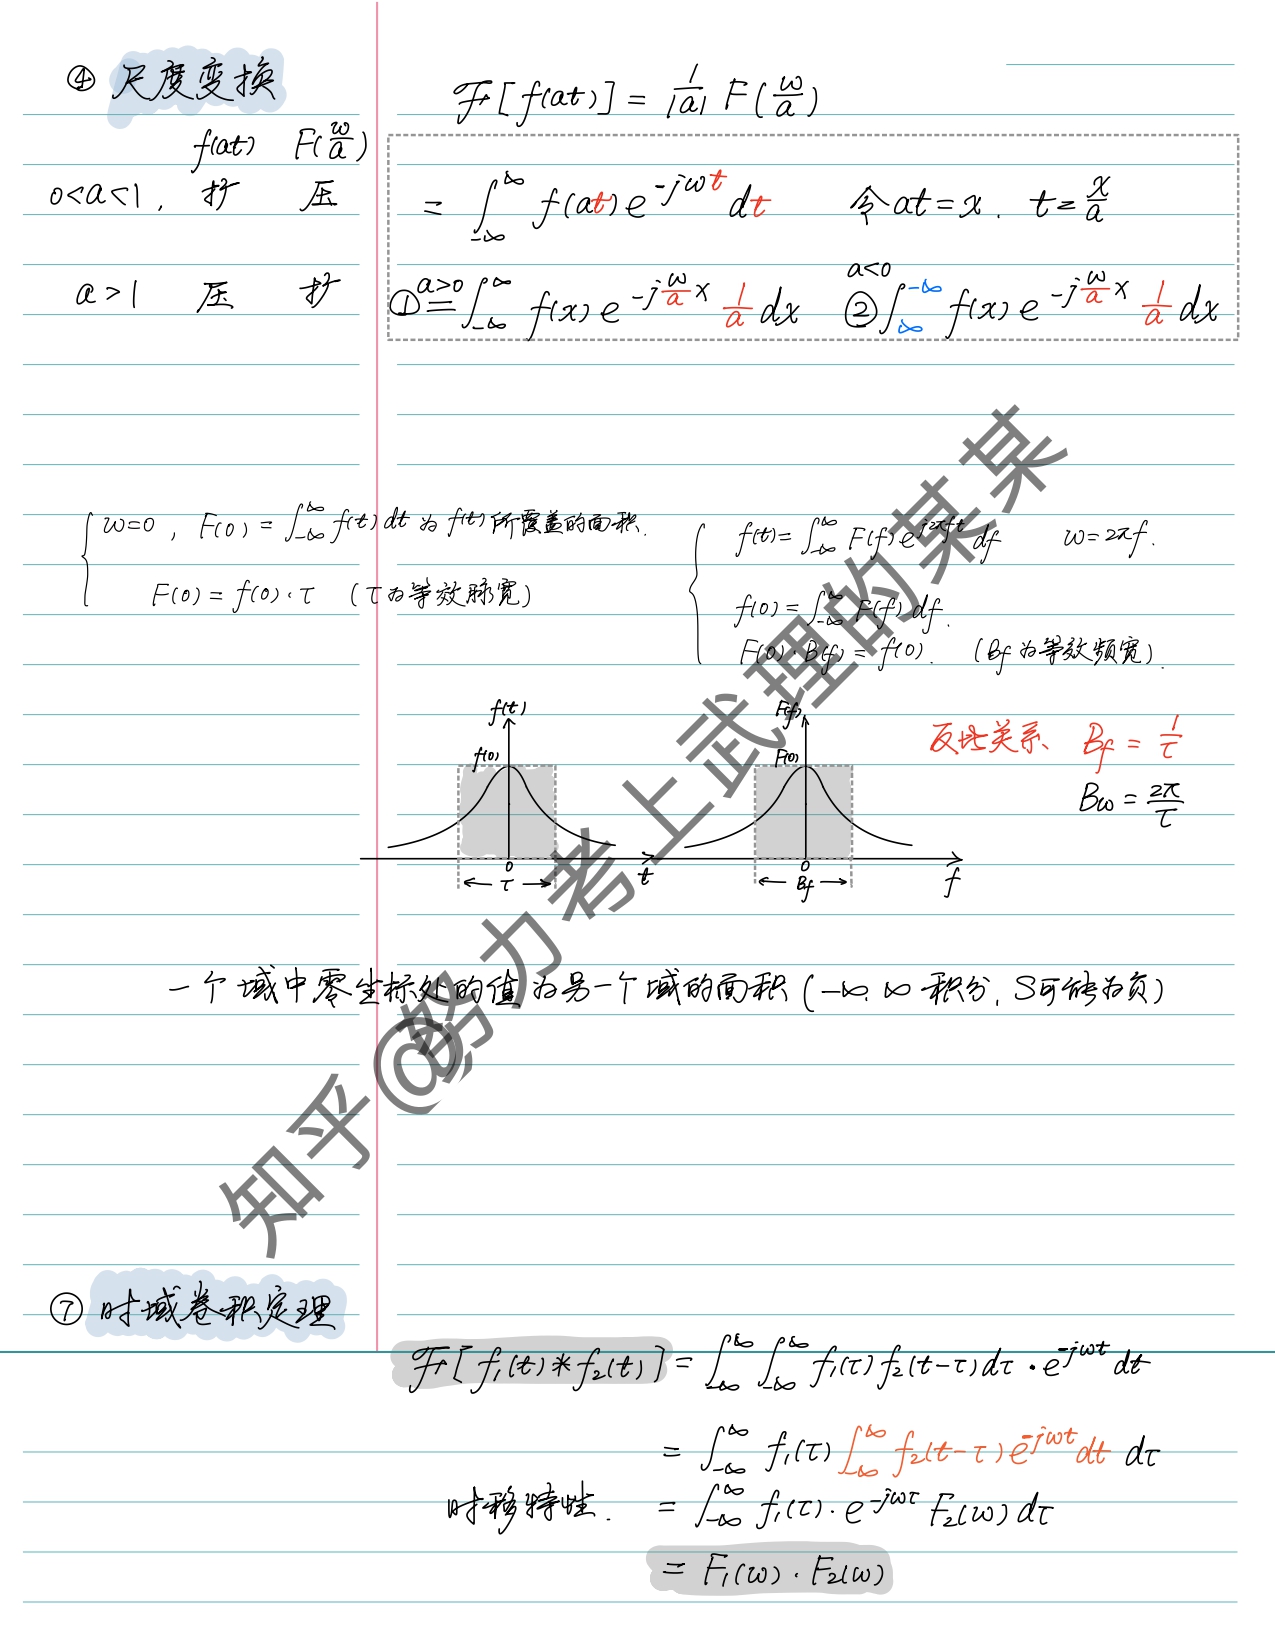 ④ 尺度变换
F[f(at)] = 1/|a| F(ω/a)
f(at) F(ω/a)
0<a<1, 扩 压
a>1 压 扩
= ∫_{-∞}^{∞} f(at) e^{-jωt} dt 令at=x. t=x/a
① a>0 = ∫_{-∞}^{∞} f(x) e^{-j(ω/a)x} 1/a dx ② a<0 ∫_{∞}^{-∞} f(x) e^{-j(ω/a)x} 1/a dx
ω=0, F(0) = ∫_{-∞}^{∞} f(t) dt 为 f(t) 所覆盖的面积.
F(0) = f(0)·τ (τ为等效脉宽)
f(t) = ∫_{-∞}^{∞} F(f) e^{j2πft} df ω=2πf.
f(0) = ∫_{-∞}^{∞} F(f) df.
F(0)·B(f) = f(0). (Bf 为等效频宽).
f(t)
f(0)
0
← τ →
t
F(f)
F(0)
0
← Bf →
f
反比关系 Bf = 1/τ
Bω = 2π/τ
一个域中零坐标处的值为另一个域的面积(-∞.∞积分, S可能为负)
⑦ 时域卷积定理
F[f₁(t)*f₂(t)] = ∫_{-∞}^{∞} ∫_{-∞}^{∞} f₁(τ) f₂(t-τ) dτ · e^{-jωt} dt
= ∫_{-∞}^{∞} f₁(τ) ∫_{-∞}^{∞} f₂(t-τ) e^{-jωt} dt dτ
时移特性. = ∫_{-∞}^{∞} f₁(τ)· e^{-jωτ} F₂(ω) dτ
= F₁(ω)· F₂(ω)
知乎@努力考上武理的某某